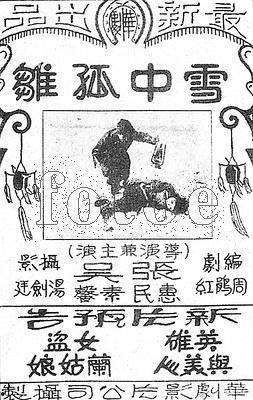 最新出品
雪中孤雛
fotoe
(導演兼主演)
編劇
周鵑紅
張惠民
吳素馨
攝影
湯劍廷
新片預告
英雄與美人
女盜蘭姑娘
華劇影片公司攝製